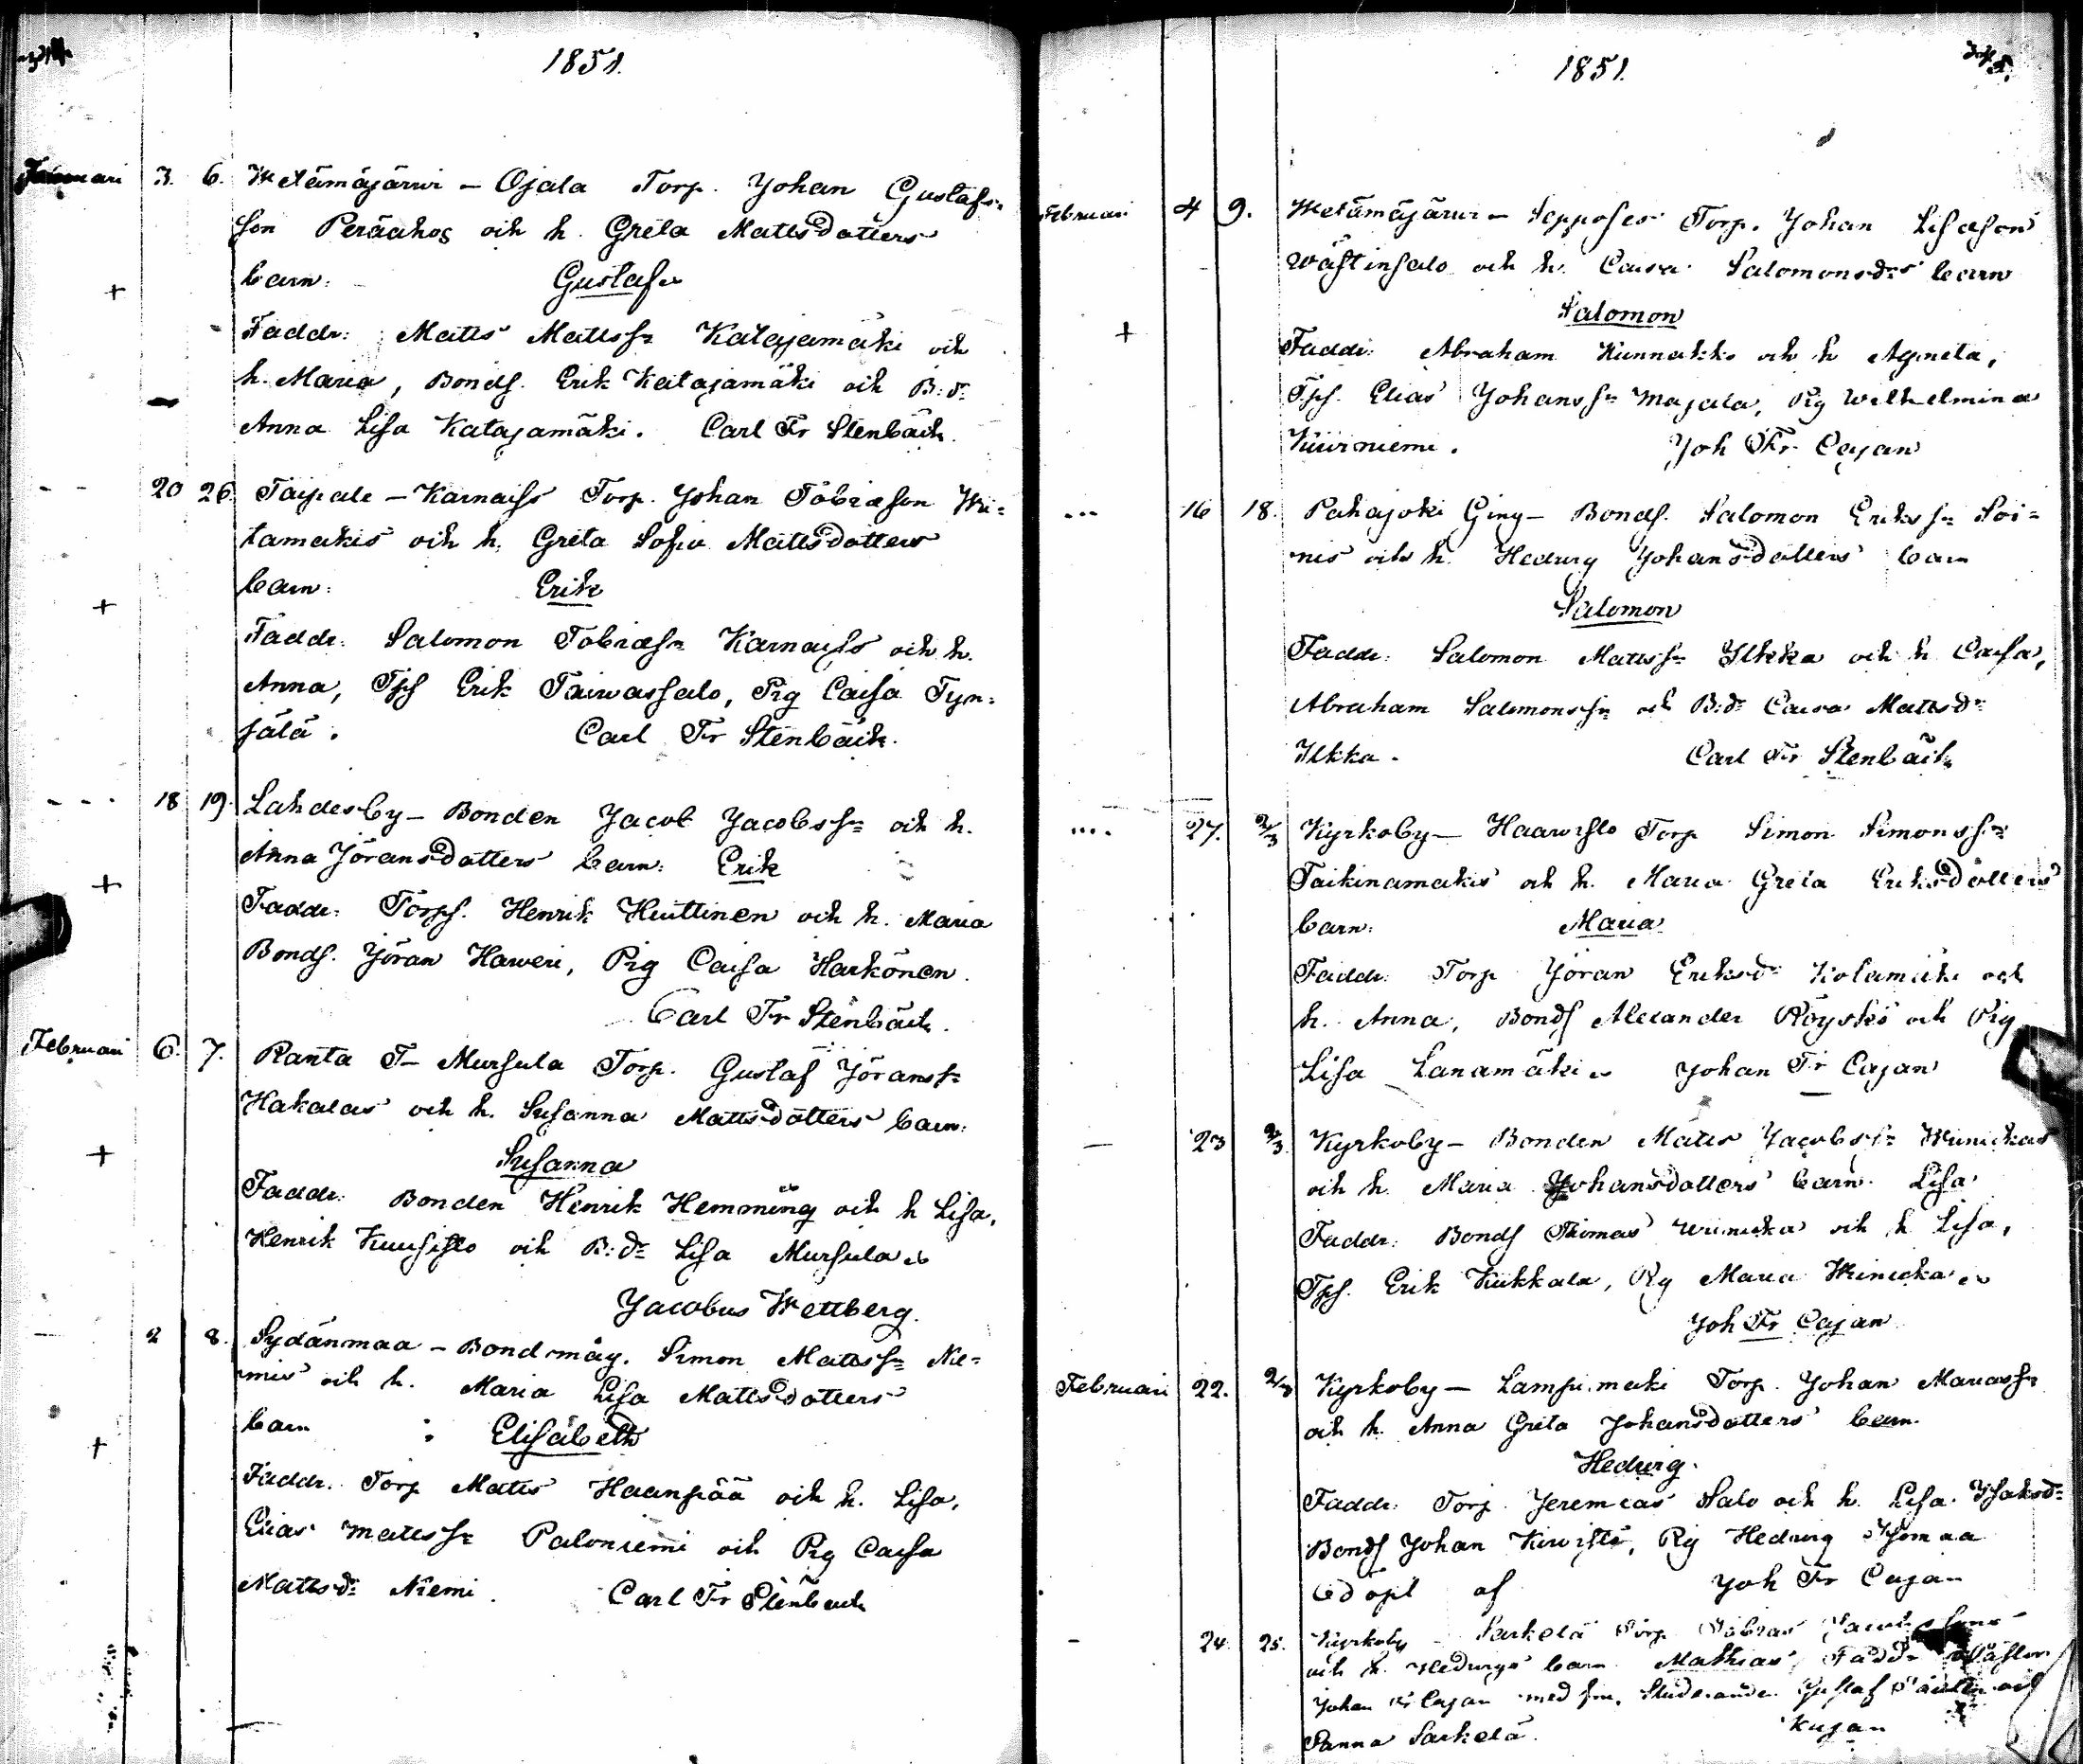 1851.
Januari 3. 6. Wetämäjärwi - Ojala Torp. Johan Gustafs-
son Peräahos och h. Greta Mattsdotters
barn: Gustaf
Faddr: Matts Mattss:n Katajamäki och
h. Maria, Bonds. Erik Katajamäki och B:dr
Anna Lisa Katajamäki. Carl Fr Stenbäck.
20 26. Taipale - Karnaiss Torp. Johan Tobiasson
tamakis och h. Greta Sofia Mattsdotters
barn: Erik
Faddr: Salomon Tobiass:n Karnaiss och h.
Anna, Tps Erik Taiwassalo, Pig Caisa Tyn-
jälä. Carl Fr Stenbäck.
18 19. Lahdesby - Bonden Jacob Jacobss:n och h.
Anna Jöransdotters barn: Erik
Faddr: Torps. Henrik Huttinen och h. Maria
Bonds. Jöran Haweri, Pig Caisa Harkönen.
Carl Fr Stenbäck.
Februari 6. 7. Ranta T- Mursula Torp. Gustaf Jöranss:n
Hakalas och h. Susanna Mattsdotters barn:
Susanna
Faddr: Bonden Henrik Hemming och h Lisa,
Henrik Kuusisto och B:dr Lisa Mursula
Jacobus Wettberg.
2 8. Sydänmaa - Bondmåg. Simon Mattss:n Nie-
mis och h. Maria Lisa Mattsdotters
barn : Elisabeth
Faddr. Torp Matts Haanpää och h. Lisa,
Elias Mattss:n Paloniemi och Pig Caisa
Mattsdr Niemi. Carl Fr Stenbäck
1851.
Februari 4 9. Wetämäjärwi - Sepposes Torp. Johan
Wästinsalo och h. Caisa Salomonsdrs barn
Salomon
Faddr: Abraham Kunnakko och h Agneta,
Tps. Elias Johanss:n Majala, Pig Wilhelmina
Kiwiniemi. Joh Fr Cajan
16 18. Pahajoki Bonds. Salomon Erikss:n Soi-
nis och h. Hedwig Johansdotters barn
Salomon
Faddr: Salomon Mattss:n Ilkka och h Caisa,
Abraham Salomonss:n och B:dr Caisa Mattsdr
Ilkka. Carl Fr Stenbäck
27. 2/3 Kyrkoby - Haawisto Torp Simon Simonss:n
Taikinamakis och h. Maria Greta Eriksdotters
barn: Maria
Faddr: Torp Jöran Eriksdr Kotamäki och
h. Anna, Bonds Alexander Röyskö och Pig
Lisa Lanamäki Johan Fr Cajan
23 2/3 Kyrkoby - Bonden Matts Jacobss:n Winickas
och h. Maria Johansdotters barn. Lisa
Faddr: Bonds Thomas Winicka och h. Lisa,
Tps. Erik Kukkala, Pig Maria Winicka
Joh Fr Cajan
Februari 22. 2/3 Kyrkoby - Lampimeki Torp. Johan Mariass:n
och h. Anna Greta Johansdotters barn
Hedwig.
Faddr: Torp. Jeremias Salo och h. Lisa Isaksdr
Bonds Johan Kiwistö, Pig Hedwig Isomaa
Död öpt af Joh Fr Cajan
24. 25. Kyrkoby - Sarkela Torp Tobias
och h. Hedwigs barn Mathias, Faddr
Johan Fr Cajan med fru, Studerande Gustaf
Sanna Sarkelä. Kujan